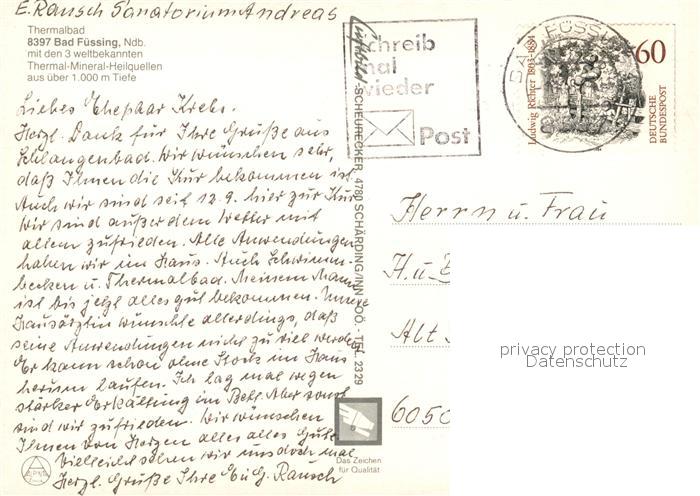 E. Rausch Sanatorium Andreas
Thermalbad
8397 Bad Füssing, Ndb.
mit den 3 weltbekannten
Thermal-Mineral-Heilquellen
aus über 1.000 m Tiefe
Liebes Ehepaar Krebs.
Herzl. Dank für Ihre Grüße aus
Schlangenbad. Wir wünschen sehr,
daß Ihnen die Kur bekommen ist.
Auch wir sind seit 12.9. hier zur Kur
Wir sind außer dem Wetter mit
allem zufrieden. Alle Anwendungen
haben wir im Haus. Auch Schwimm-
becken u. Thermalbad. Meinem Mann
ist bis jetzt alles gut bekommen. Unsere
Hausärztin wünschte allerdings, daß
seine Anwendungen nicht zu viel werden
Er kann schon ohne Stock im Haus
herum laufen. Ich lag mal wegen
starker Erkältung im Bett. Aber sonst
sind wir zufrieden. Wir wünschen
Ihnen von Herzen alles alles Gute
Vielleicht sehen wir uns doch mal
Herzl. Grüße Ihre E u G. Rausch
Luftbild - SCHEURECKER, 4780 SCHÄRDING/INN OÖ. · TEL. 2329
Schreib
mal
wieder
Post
BAD FÜSSING
Ludwig Richter 1803-1884
60
DEUTSCHE
BUNDESPOST
Herrn u. Frau
H. u.
Alt
6050
privacy protection
Datenschutz
Das Zeichen
für Qualität